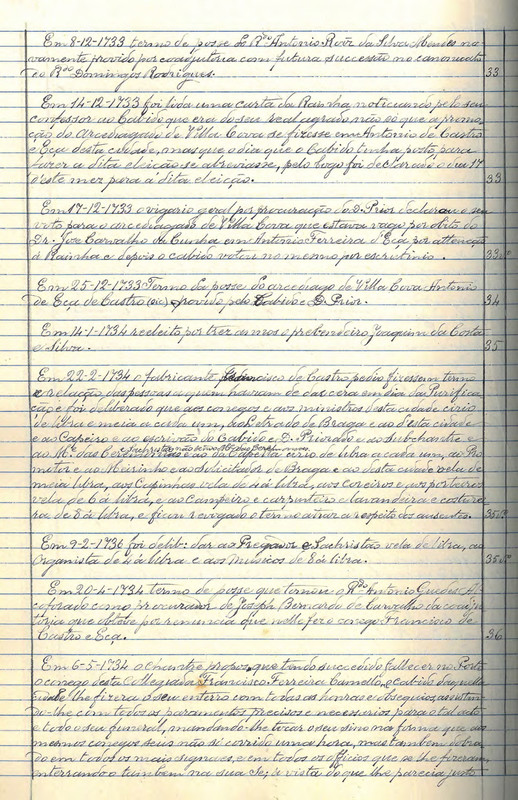 Em 8-12-1733 termo de posse do Rdo Antonio Roiz da Silva Mendes no
vamente provido por coadjutoria com futura successão no canonicato
do Rdo Domingos Rodrigues. 33
Em 14-12-1733 foi lida uma carta da Rainha noticiando pelo seu
confessor ao Cabido que era do seu real agrado não só que a promo
ção do arcediagado de Villa Cova se fizesse em Antonio de Castro
e Eça desta cidade, mas que o dia que o Cabido tinha posto para
fazer a dita eleição se abreviasse, pelo logo foi declarado o dia 17
d'este mez para a dita eleição. 33
Em 17-12-1733 o vigario geral por procuração do D. Prior declarou o seu
voto para o arcediagado de Villa Cova que estava vago por obito do
Dr. José Carvalho da Cunha em Antonio Ferreira d'Eça por attenção
á Rainha e depois o cabido votou no mesmo por escrutinio. 33vº
Em 25-12-1733 Termo da posse do arcediago de Villa Cova Antonio
de Eça de Castro (sic) provido pelo Cabido e D. Prior. 34
Em 14-1-1734 reeleito por trez annos o prebendeiro Joaquim da Costa
e Silva. 35
Em 22-2-1734 o fabricante Francisco de Castro pediu fizessem termo
e relação das pessoas a quem haviam de dar cera em dia da Purifica
ção e foi deliberado que aos conegos e aos ministros desta cidade cirio
de libra e meia a cada um, ao Letrado de Braga e ao d'esta cidade
e ao Capeiro e ao escrivão do Cabido e D. Priorado e ao Subchantre e
Sachristão
ao Me. das cirio de libra a cada um, ao Pro
motor e ao Meirinho e ao Solicitador de Braga e ao desta cidade vela de
meia libra, aos Capinhas vela de 4 á libra, aos coreiros e aos porteiros
vela de 6 á libra, e ao Campeiro e e lavandeira e costurei
ra de 8 á libra, e ficou revogado o termo atraz a respeito dos ausentes. 35vº
Em 9-2-1736 foi delib: dar ao Pregador e Sachristão vela de libra, ao
Organista de 4 á libra e aos Musicos de 8 á libra. 35vº
Em 20-4-1734 termo de posse que tomou o Rdo Antonio Guedes Al
coforado como procurador de Joseph Bernardo de Carvalho da coadju
toria que obteve por renuncia que nelle fez o conego Francisco de
Castro e Eça. 36
Em 6-5-1734 o Chantre propoz que tendo succedido fallecer no Porto
o conego desta Collegiada Francisco Ferreira Camello, o Cabido daquella
cidade lhe fizera o seu enterro com todas as honras e obsequios, assistin
do-lhe com todos os paramentos precisos e necessarios para o tal acto
e todo o seu funeral, mandando-lhe tocar o seu sino na forma que aos
mesmos conegos seus não só corrido uma hora, mas tambem dobra
do em todos os mais signaes, e em todos os officios que se lhe fizeram,
enterrando-o tambem na sua Sé, á vista do que lhe parecia justo